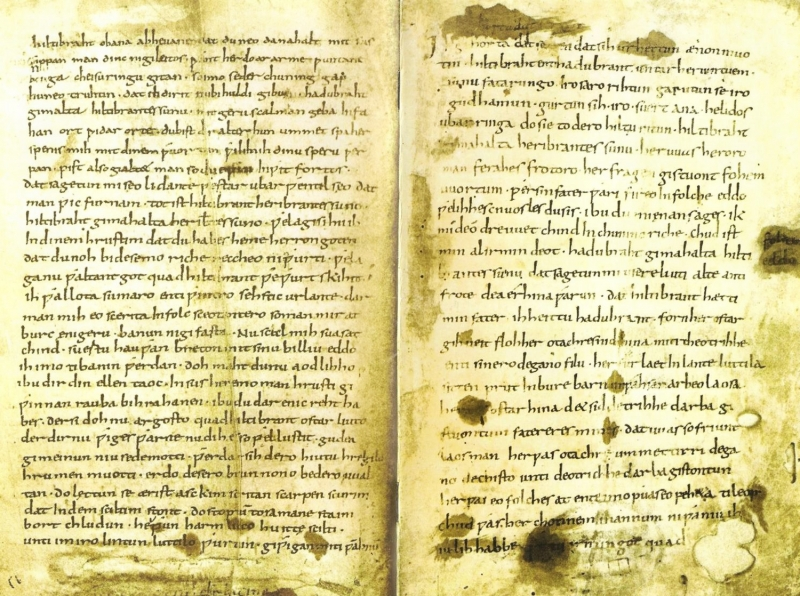 hiltibraht obana abheuane dat du neo danahalt mit sus
sippan man dinc ni gileitos · ƿant her do ar arme ƿuntane
bouga cheisuringu gitan · so imo seder chuning gap
huneo truhtin · dat ih dir it nu bihuldi gibu · hadubraht
gimalta hiltibrantes sunu · mit geru scal man geba infa
han ort ƿidar orte · du bist dir alter hun ummet spaher
spenis mih mit dinem ƿuortun ƿilihuh dinu speru ƿer
pan · pist also gialtet man so du eƿin inƿit fortos ·
dat sagetun mi seo lidante ƿestar ubar ƿentilseo dat
man ƿic furnam · tot ist hiltibrant heribrantes suno
hiltibraht gimahalta heribtes suno · ƿelaga gisihu ih
In dinem hrustim dat du habes heme herron goten
dat du noh bi desemo riche reccheo ni ƿurti · ƿela
ga nu ƿaltant got quad hiltibrant ƿeƿurt skihit ·
ih ƿallota sumaro enti ƿintro sehstic ur lante · dar
man mih eo scerita In folc sceotantero so man mir at
burc enigeru · banun ni gifasta · Nu scal mih suasat
chind · suertu hauƿan breton mit sinu billiu eddo
ih imo ti banin ƿerdan · doh maht du nu aodlihho
ibu dir din ellen taoc · In sus heremo man hrusti gi
ƿinnan rauba bihrahanen · ibu du dar enic reht ha
bes · der si doh nu argosto quad hiltibrant ostar liuto
der dir nu ƿiges ƿarne nu dih es so ƿel lustit · gudea
gimeinun niuse demotti · ƿerdar sih hiutu dero hregilo
hrumen muotti · erdo desero brunnono bedero uual
tan · do lettun se ærist asckim scritan scarpen scurim
dat In dem sciltim stont · do stoptun tosamane staim
bort chludun · heƿun harmlicco huitte scilti ·
unti im iro lintun luttilo ƿurtun · giƿigan miti ƿabnum
ik gihorta dat seggen dat sih urhettun ænon muo
tin · hiltibraht enti hadubrant untar heriun tuem ·
sunu fatarungo · iro saro rihtun garutun se iro
gudhamun · gurtun sih · iro · suert ana · helidos
ubar ringa do sie to dero hiltu ritun · hiltibraht
gimahalta heribrantes sunu · her uuas heroro
man ferahes frotoro · her fragen gistuont fohem
uuortum · ƿer sin fater ƿari fireo In folche eddo
ƿelihhes cnuosles du sis · ibu du mi enan sages · ik
mi de odre uuet chind In chunincriche · chud ist
min al irmindeot · hadubraht gimahalta hilti
brantes sunu dat sagetun mi usere liuti alte anti
frote dea erhina ƿarun · dat hiltibrant hætti
min fater · ih heittu hadubrant · forn her ostar
gihueit floh her otachres nid hina miti theotrihhe
enti sinero degano filu · her furlaet In lante luttila
sitten prut In bure barn unƿahsan arbeo laosa ·
her raet ostar hina det sid detrihhe darba gi
stuontum fatereres mines · dat uuas so friunt
laos man her ƿas otachre ummettirri dega
no dechisto unti deotrichhe darba gistontun
her ƿas eo folches at ente imo ƿuas eo peheta ti leop
chud ƿas her chonnem mannum ni ƿaniu ih
iu lib habbe irmingot quad